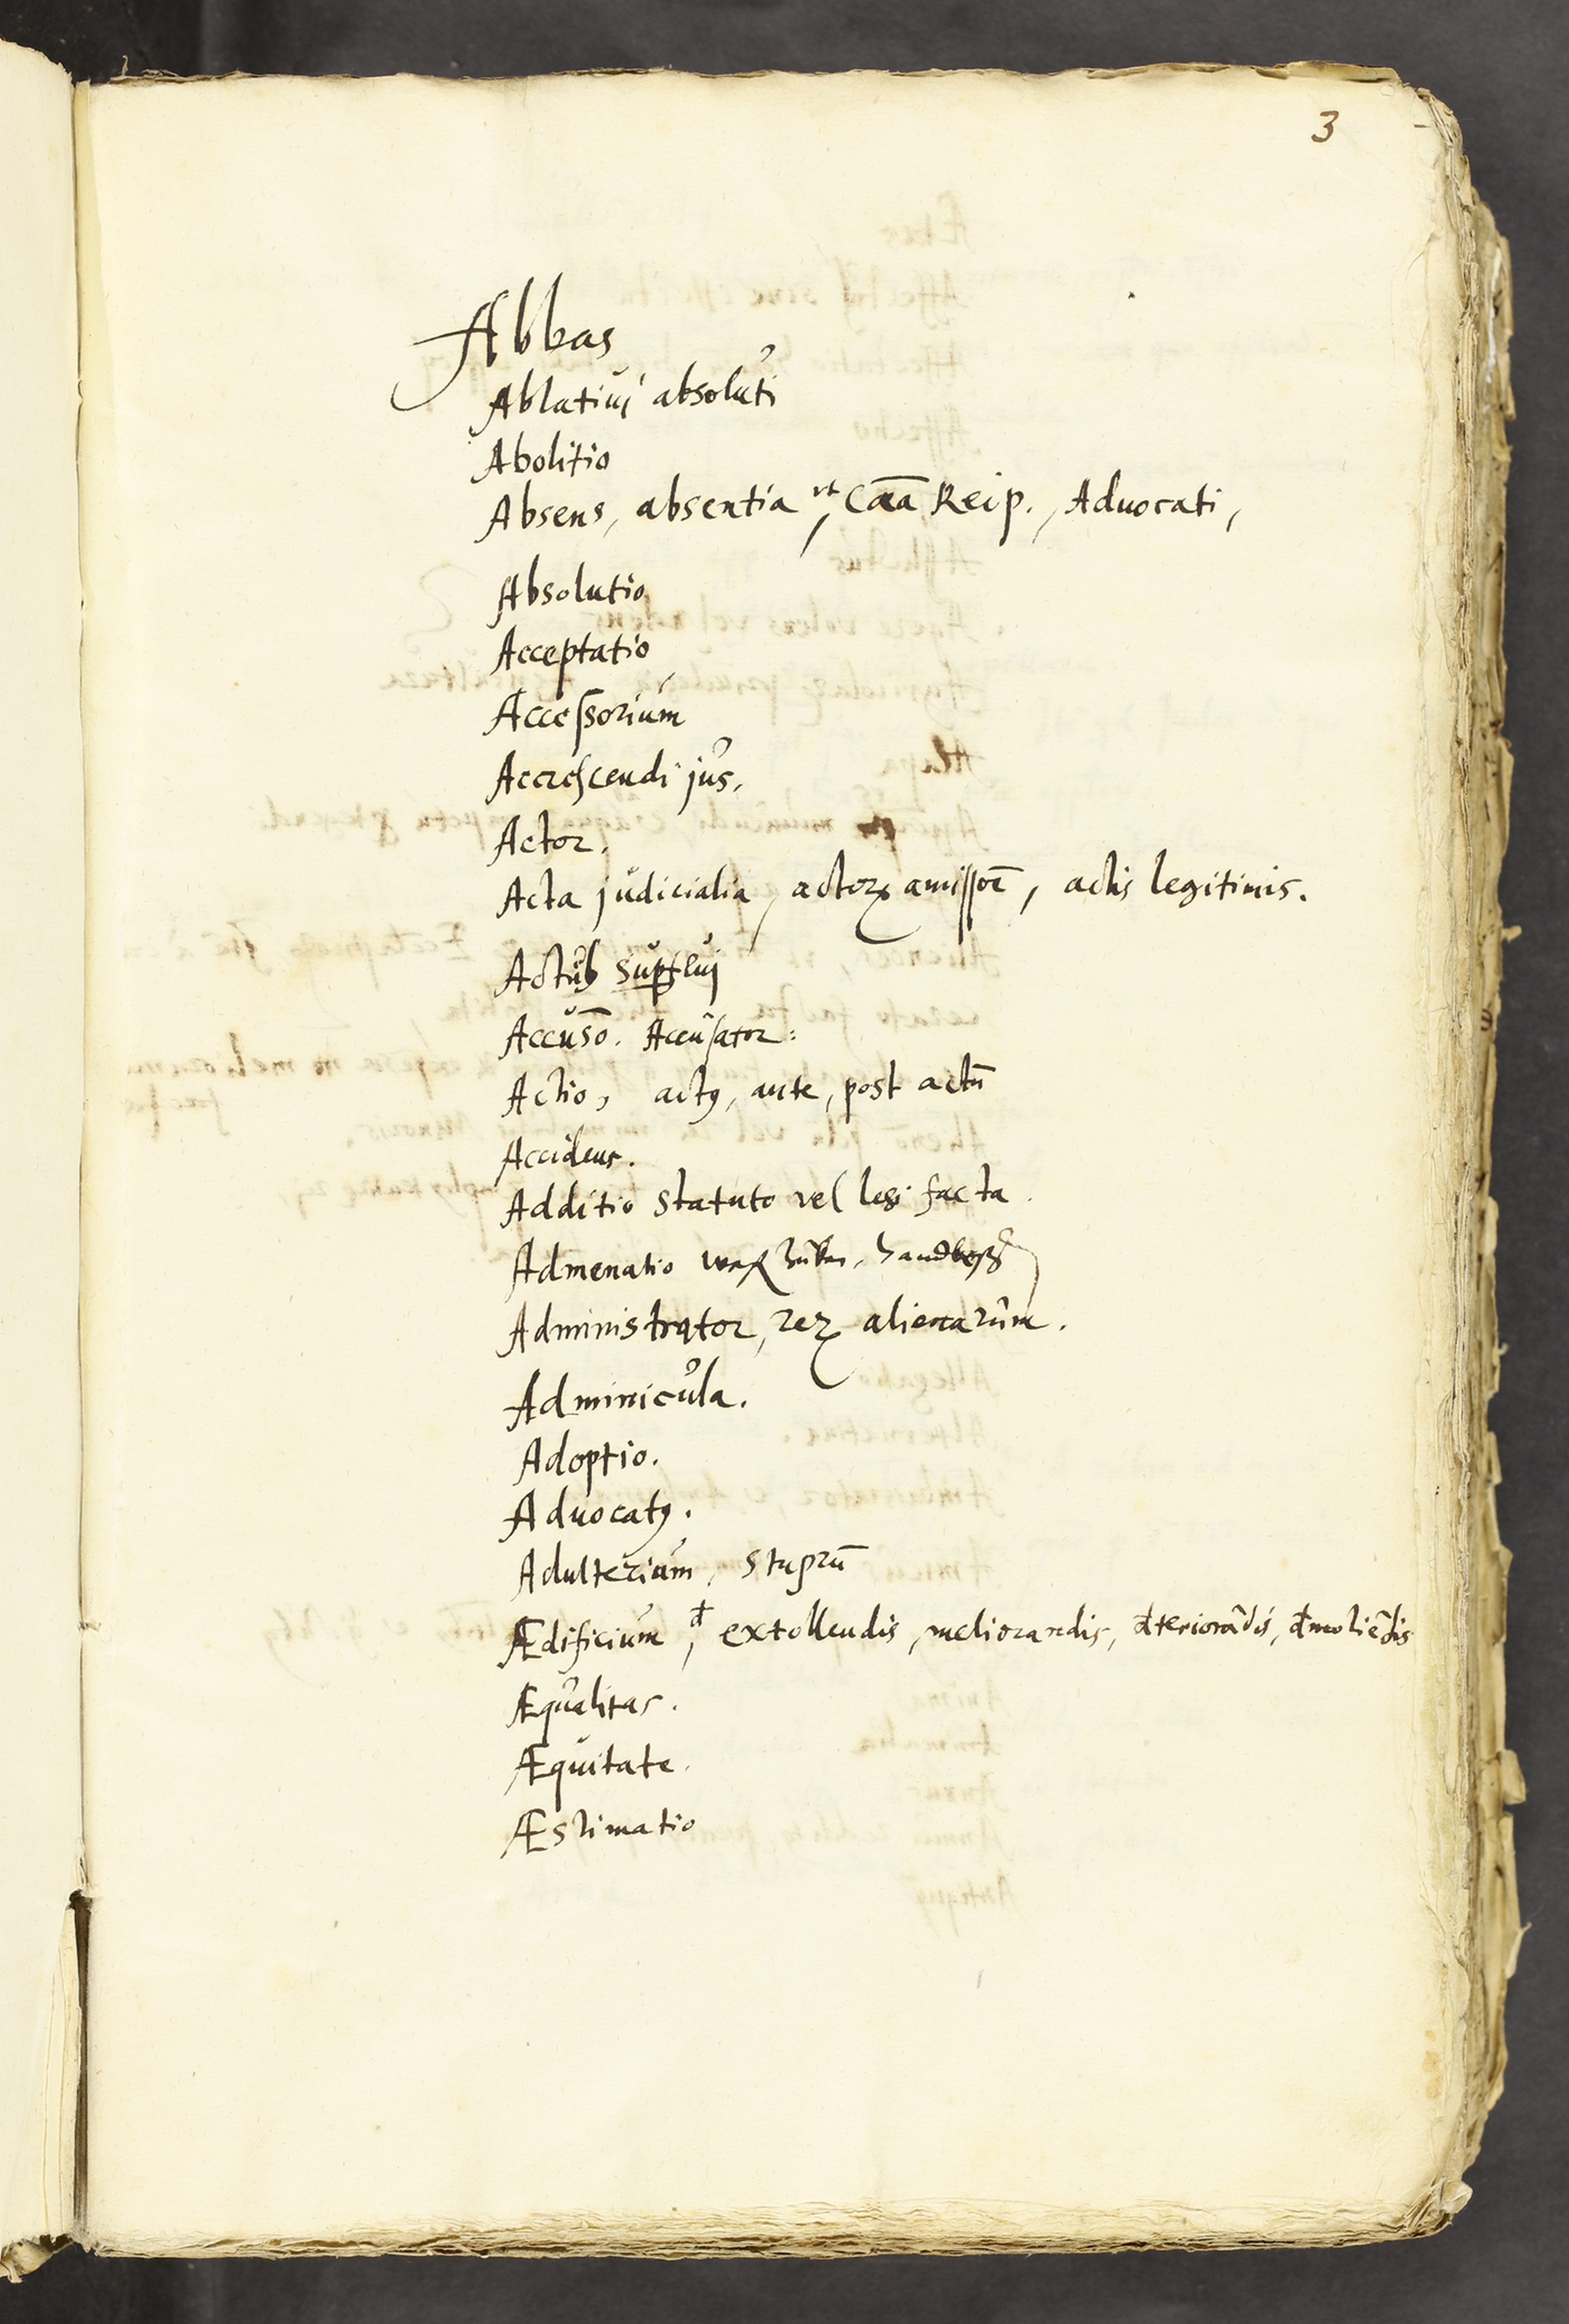 3
Abbas
Ablativi absoluti
Abolitio
Absens, absentia, vt Cāa Reip., Aduocati,
Absolutio
Acceptatio
Accessorium
Accrescendi jus,
Actor.
Acta judicialia, actorꝝ amissōē, actis legitimis.
Actus
Accusō. Accusator:
Actio, actꝰ, ante, post actū
Accidens.
Additio statuto vel legi facta.
Admenatio
Administrator, reꝝ alienarum.
Adminicula.
Adoptio.
Aduocatꝰ.
Adulterium, stuprū
Ædificium, đ extollendis, meliorandis, đteriorādis, đmoliēdis
Æqualitas.
Æquitate.
Æstimatio